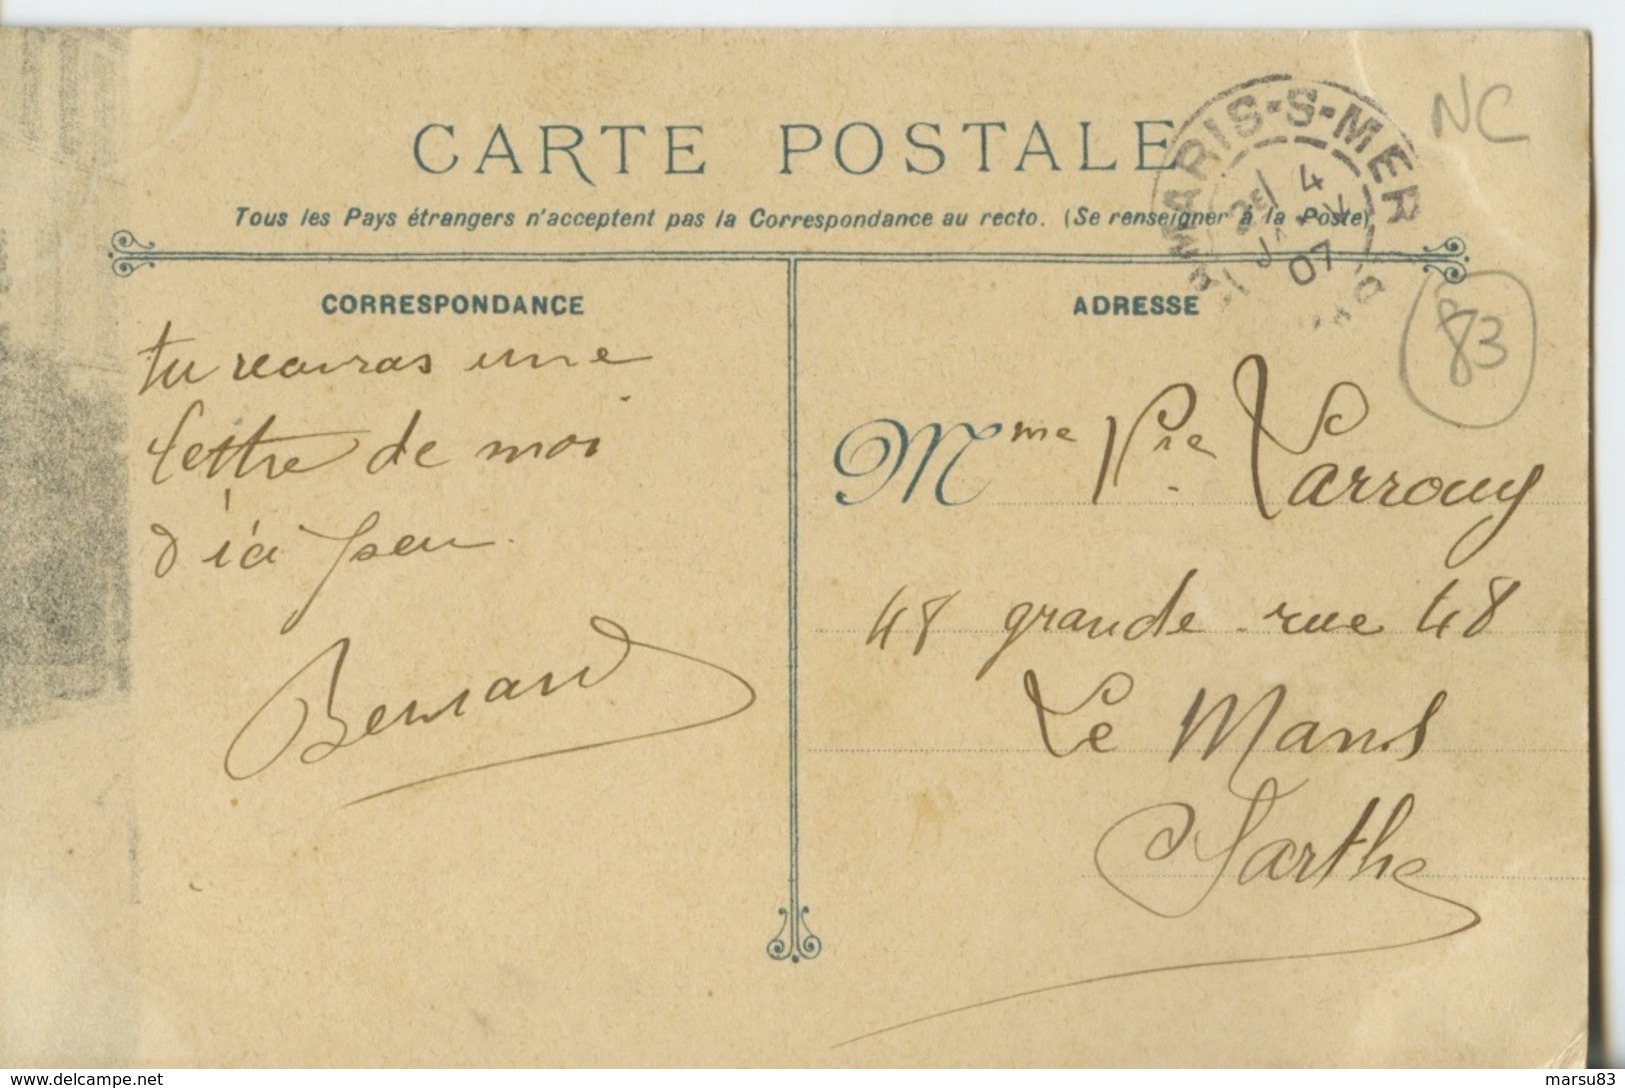 CARTE POSTALE
MARIS-S-MER
4
07
NC
Tous les Pays étrangers n'acceptent pas la Correspondance au recto. (Se renseigner à la Poste)
CORRESPONDANCE
tu recevras une
lettre de moi
d'ici peu.
Bernard
ADRESSE
83
Mme Vve Larrouy
48 grande rue 48
Le Mans
Sarthe
www.delcampe.net
marsu83